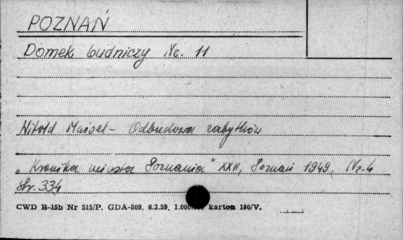 POZNAŃ
Domek budniczy Nr. 11
Witold Maisel - Odbudowa zabytków
„Kronika miasta Poznania" XXII, Poznań 1949, Nr. 4
Str. 334
CWD B-15b Nr 515/P. GDA-809. 6.2.59. 1.000. karton 180/V.